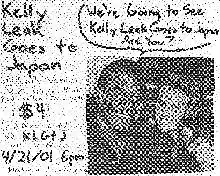 Kelly
Leak
Goes to
Japan
$4
4/21/01 6pm
We're Going to See
Kelly Leak Goes to Japan
Are You?